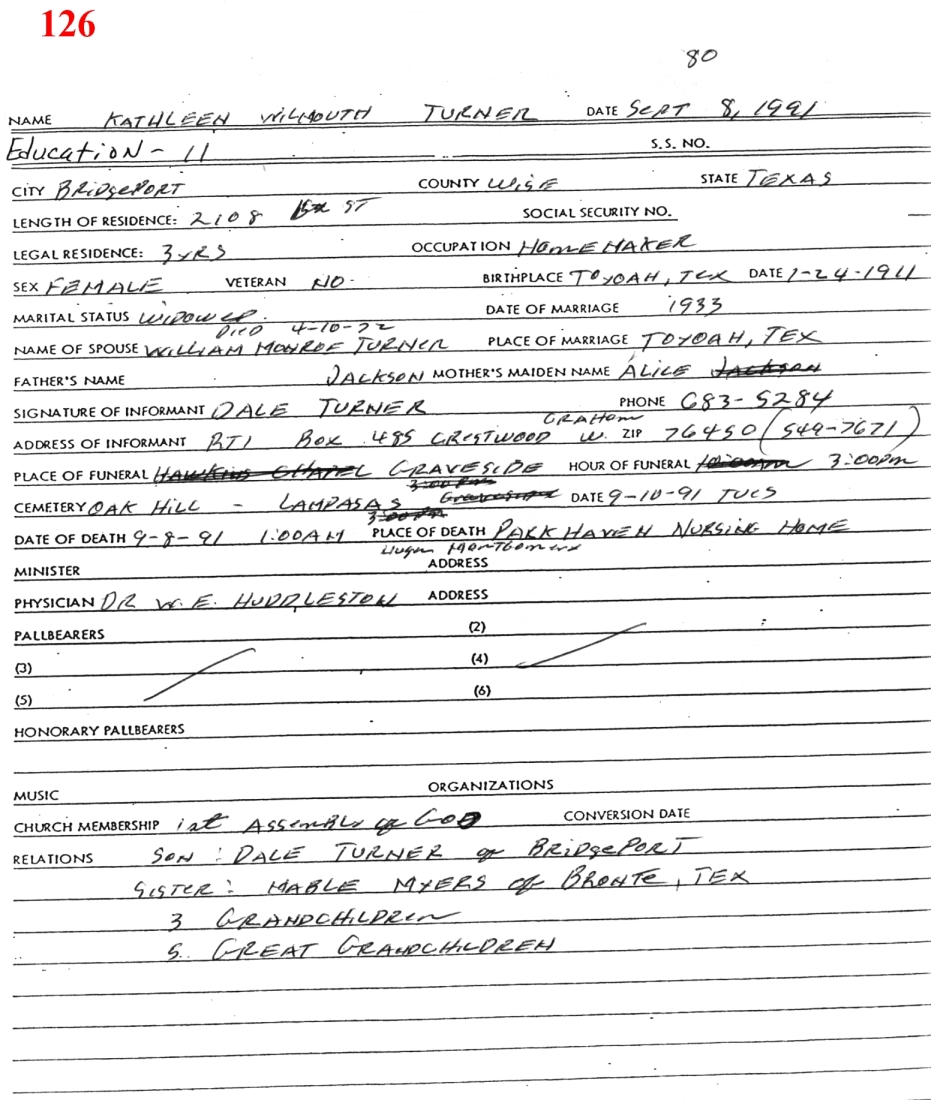 126
80
NAME KATHLEEN WILMOUTH TURNER DATE SEPT 8, 1991
Education - 11 S.S. NO.
CITY BRIDGEPORT COUNTY WISE STATE TEXAS
LENGTH OF RESIDENCE: 2108 ST SOCIAL SECURITY NO.
LEGAL RESIDENCE: 3 YRS OCCUPATION HOMEMAKER
SEX FEMALE VETERAN NO - BIRTHPLACE TOYOAH, TEX DATE 1-24-1911
MARITAL STATUS WIDOWED. DATE OF MARRIAGE 1933
DIED 4-10-72
NAME OF SPOUSE WILLIAM MONROE TURNER PLACE OF MARRIAGE TOYOAH, TEX
FATHER'S NAME JACKSON MOTHER'S MAIDEN NAME ALICE JACKSON
SIGNATURE OF INFORMANT DALE TURNER PHONE 683-5284
GRAHAM
ADDRESS OF INFORMANT RT1 BOX 485 CRESTWOOD W. ZIP 76450 (549-7671)
PLACE OF FUNERAL HAWKINS CHAPEL GRAVESIDE HOUR OF FUNERAL 10:00am 3:00pm
3:00 PM
CEMETERY OAK HILL - LAMPASAS Graveside DATE 9-10-91 TUES
3:00 PM
DATE OF DEATH 9-8-91 1:00AM PLACE OF DEATH PARK HAVEN NURSING HOME
Montgomery
MINISTER ADDRESS
PHYSICIAN DR W.E. HUDDLESTON ADDRESS
PALLBEARERS (2)
(3) (4)
(5) (6)
HONORARY PALLBEARERS
MUSIC ORGANIZATIONS
CHURCH MEMBERSHIP 1st Assembly of GOD CONVERSION DATE
RELATIONS SON: DALE TURNER of BRIDGEPORT
SISTER: MABLE MYERS of BRONTE, TEX
3 GRANDCHILDREN
5. GREAT GRANDCHILDREN